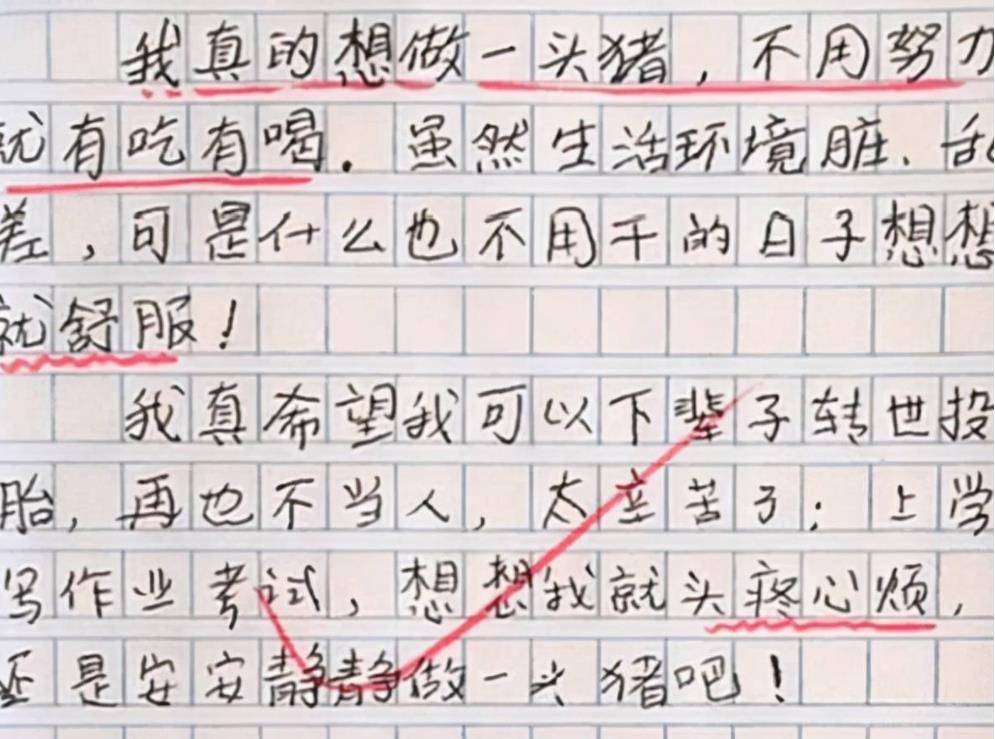 我真的想做一头猪，不用努力
就有吃有喝。虽然生活环境脏、乱
差，可是什么也不用干的日子想想
就舒服！
我真希望我可以下辈子转世投
胎，再也不当人，太辛苦了；上学
写作业考试，想想我就头疼心烦，
还是安安静静做一头猪吧！